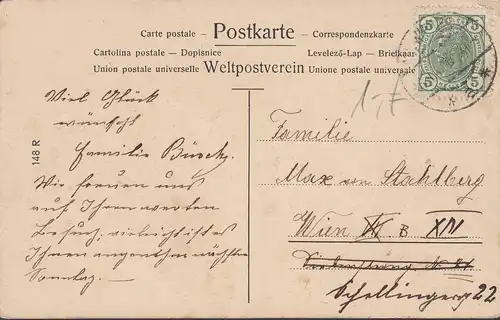 Carte postale – Postkarte – Correspondenzkarte
Cartolina postale – Dopisnice Levelező-Lap – Briefkaart
Union postale universelle Weltpostverein Unione postale universale
5 5
5 5
1,-
148 R
Viel Glück
wünscht
Familie
Wir freuen uns
auf Ihren werten
Besuch, vielleicht ist es
Ihnen angenehm nächsten
Sonntag.
Familie
Max von Stahlberg
Wien B XIV
22